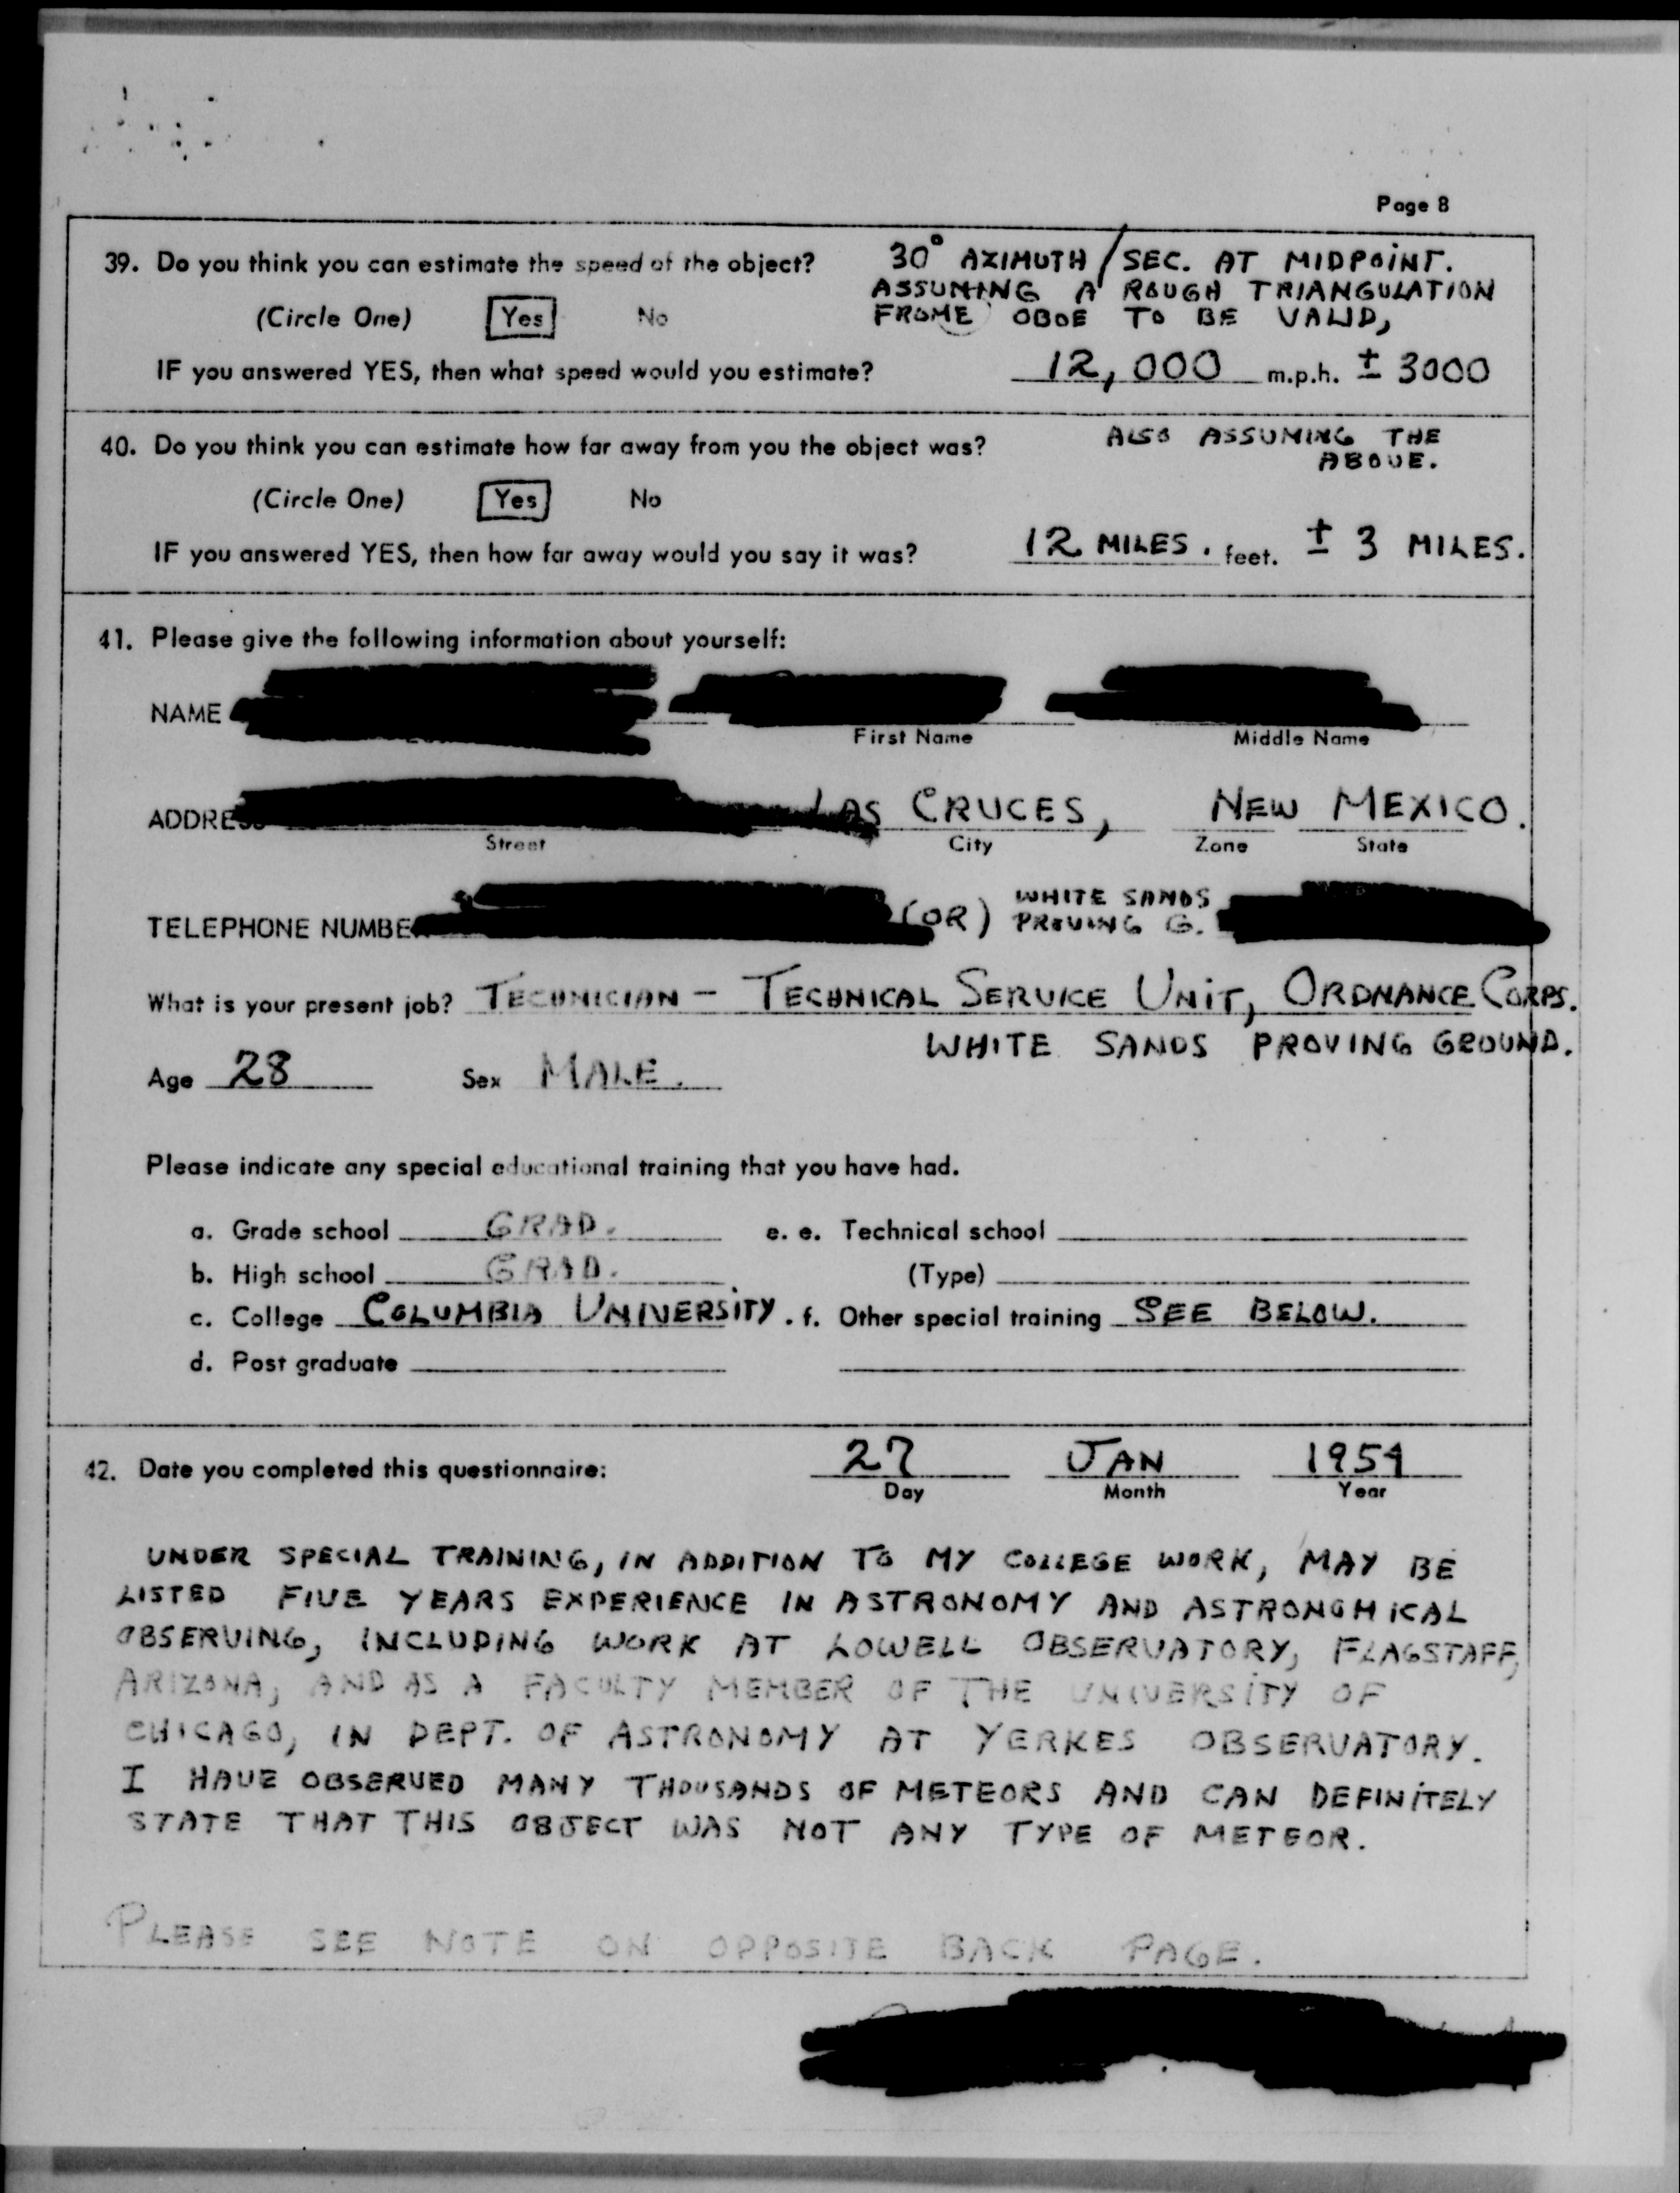 Page 8
39. Do you think you can estimate the speed of the object?
30° AZIMUTH/SEC. AT MIDPOINT.
ASSUMING A ROUGH TRIANGULATION
(Circle One) Yes No
FROME OBOE TO BE VALID,
IF you answered YES, then what speed would you estimate? 12,000 m.p.h. ± 3000
40. Do you think you can estimate how far away from you the object was?
ALSO ASSUMING THE
ABOVE.
(Circle One) Yes No
IF you answered YES, then how far away would you say it was? 12 MILES. feet. ± 3 MILES.
41. Please give the following information about yourself:
NAME
First Name Middle Name
ADDRESS LAS CRUCES, NEW MEXICO.
Street City Zone State
TELEPHONE NUMBER (OR) WHITE SANDS
PROVING G.
What is your present job? TECHNICIAN - TECHNICAL SERVICE UNIT, ORDNANCE CORPS.
WHITE SANDS PROVING GROUND.
Age 28 Sex MALE.
Please indicate any special educational training that you have had.
a. Grade school GRAD. e. e. Technical school
b. High school GRAD. (Type)
c. College COLUMBIA UNIVERSITY. f. Other special training SEE BELOW.
d. Post graduate
42. Date you completed this questionnaire: 27 JAN 1954
Day Month Year
UNDER SPECIAL TRAINING, IN ADDITION TO MY COLLEGE WORK, MAY BE
LISTED FIVE YEARS EXPERIENCE IN ASTRONOMY AND ASTRONOMICAL
OBSERVING, INCLUDING WORK AT LOWELL OBSERVATORY, FLAGSTAFF,
ARIZONA, AND AS A FACULTY MEMBER OF THE UNIVERSITY OF
CHICAGO, IN DEPT. OF ASTRONOMY AT YERKES OBSERVATORY.
I HAVE OBSERVED MANY THOUSANDS OF METEORS AND CAN DEFINITELY
STATE THAT THIS OBJECT WAS NOT ANY TYPE OF METEOR.
PLEASE SEE NOTE ON OPPOSITE BACK PAGE.